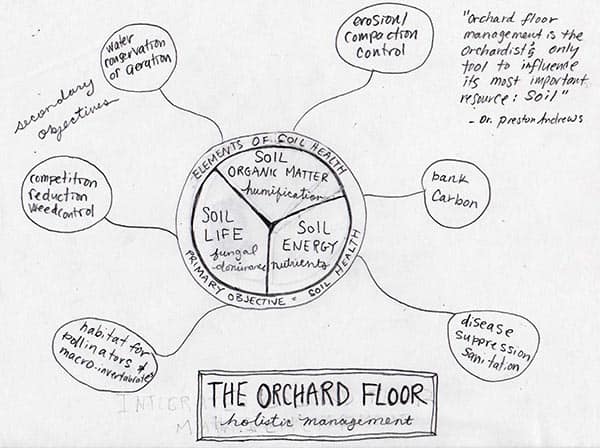 water
conservation
or aeration
erosion/
compaction
control
"Orchard floor
management is the
orchardist's only
tool to influence
its most important
resource: Soil"
- Dr. Preston Andrews
secondary
objectives
ELEMENTS OF SOIL HEALTH
SOIL
ORGANIC MATTER
humification
SOIL
LIFE
fungal
dominance
SOIL
ENERGY
nutrients
PRIMARY OBJECTIVE - SOIL HEALTH
competition
reduction
weed control
bank
Carbon
habitat for
pollinators &
macro-invertabrates
disease
suppression
sanitation
THE ORCHARD FLOOR
holistic management